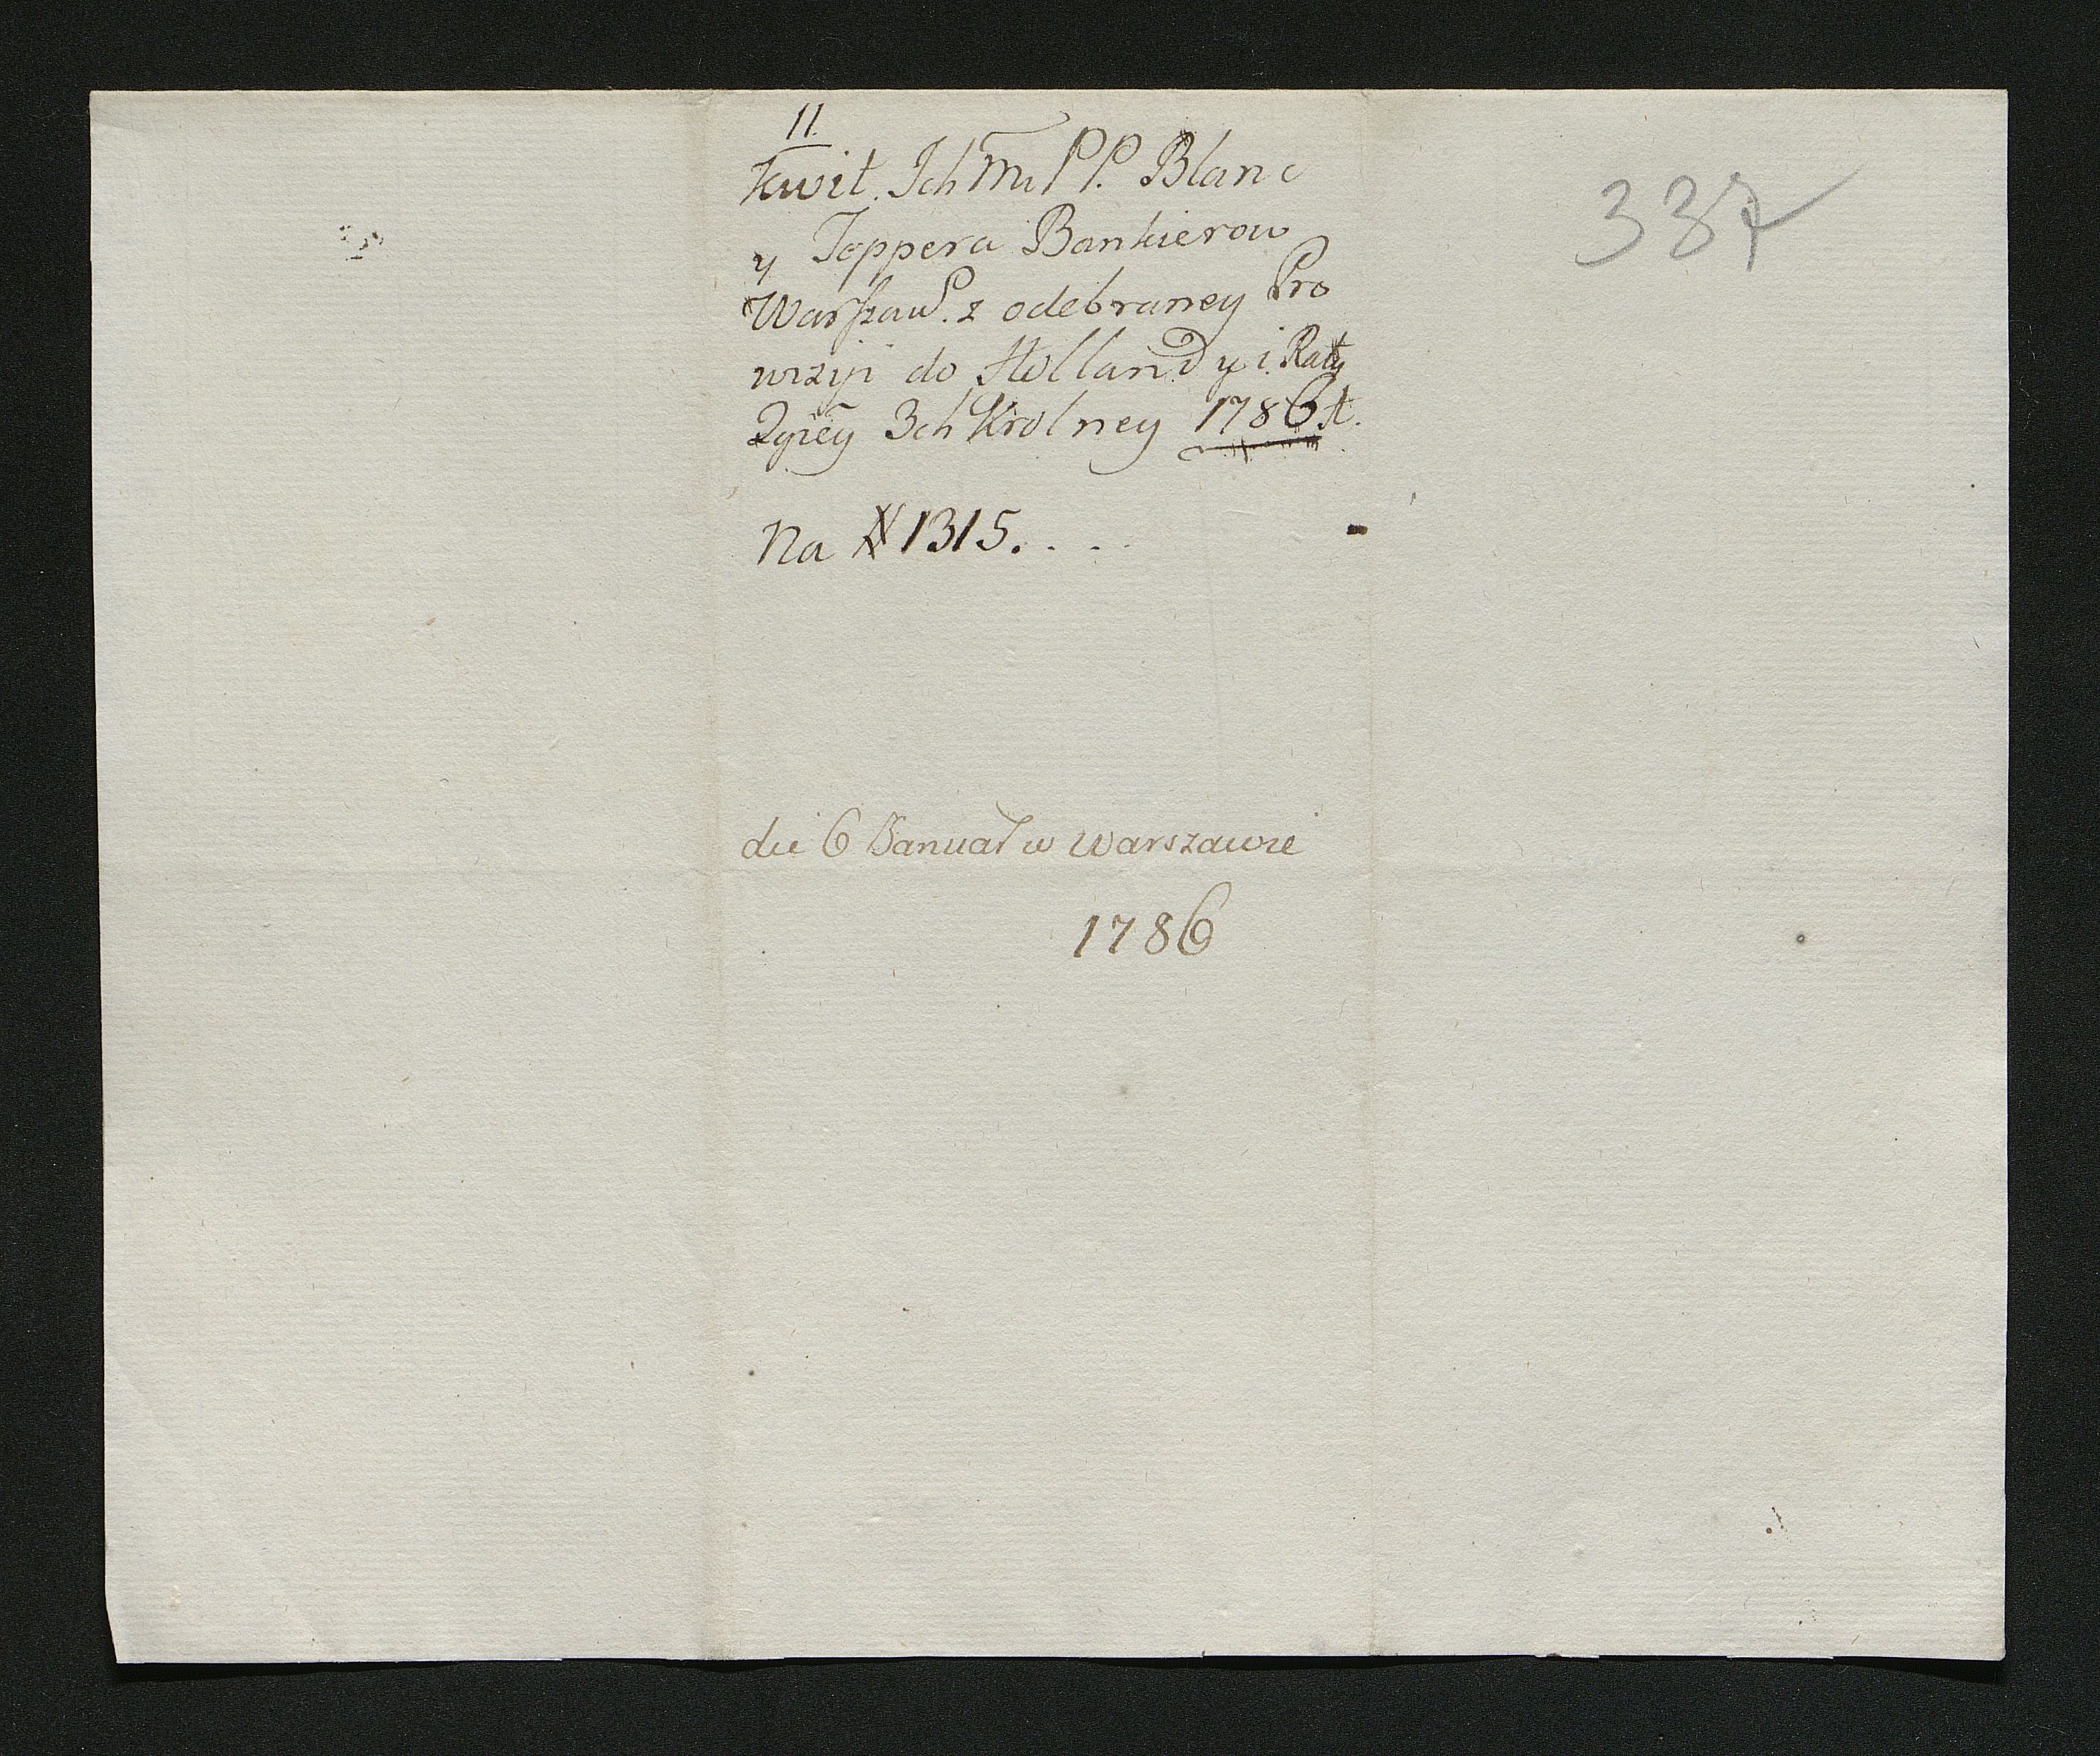 11.
Kwit. Ich m PP. Blanc
y Teppera Bankierow
Warszaw. z odebraney Pro
wizyi do Hollandyi i. Raty
3ch Krolney 1786 R.
Na # 1315. . . . -
die 6 Januar w Warszawie
1786
337